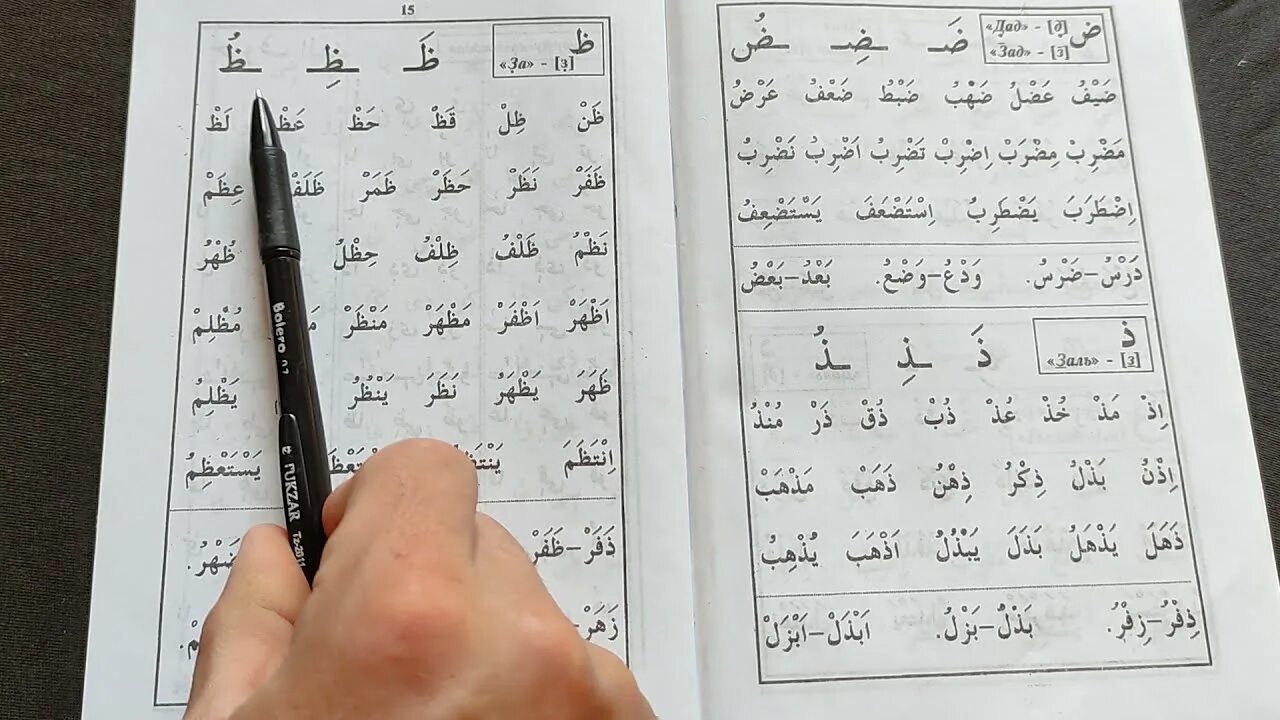 15
ظ
«За» - [з̣]
ظَـ ـظِـ ـظُـ
ظَنْ ظِلْ قَظْ حَظْ عَظْ لَظْ
ظَفَرْ نَظَرْ حَظَرْ ظَمَرْ عِظَمْ
نَظْمُ ظَلْفُ ظِلْفُ حِظْلُ ظُهْرُ
اَظْهَرْ اَظْفَرْ مَظْهَرْ مَنْظَرْ مُظَّلِمْ
ظَهَرَ يَظْهَرُ نَظَرَ يَنْظُرُ يَظْلِمُ
اِنْتَظَمَ يَسْتَعْظِمُ
ذَفَرْ–ظَفَرْ
زَهَرْ–
ض
«Дад» - [д̣]
«Зад» - [з̄]
ضَـ ـضِـ ـضُ
ضَيْفُ عَضْلُ ضَهْبُ ضَبْطُ ضَعْفُ عَرْضُ
مَضْرِبْ مِضْرَبْ اِضْرِبْ تَضْرِبُ اَضْرِبُ نَضْرِبُ
اِضْطَرَبَ يَضْطَرِبُ اِسْتَضْعَفَ يَسْتَضْعِفُ
دَرْسُ–ضَرْسُ. وَدْعُ–وَضْعُ. بَعْدُ–بَعْضُ
ذ
«Заль» - [з]
ذَ ـذِ ـذُ
اِذْ مَذْ خُذْ عُذْ ذُبْ ذُقْ ذَرْ مُنْذُ
اِذْنُ بَذْلُ ذِكْرُ ذِهْنُ ذَهَبْ مَذْهَبْ
ذَهَلَ يَذْهَلُ بَذَلَ يَبْذُلُ اَذْهَبَ يُذْهِبُ
ذِفْرُ–زِفْرُ. بَذْلُ–بَزْلُ. اَبْذَلْ–اَبْزَلْ
Bolero
FUKZAR